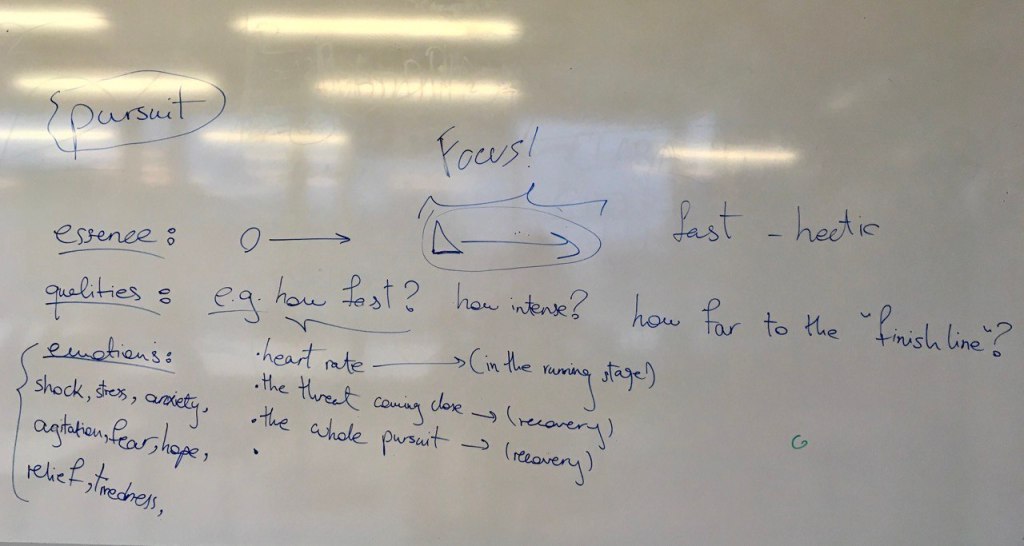 pursuit
Focus!
essence: fast - hectic
qualities: e.g. how fast? how intense? how far to the "finish line"?
emotions:
shock, stress, anxiety,
agitation, fear, hope,
relief, tiredness,
• heart rate → (in the running stage)
• the threat coming close → (recovery)
• the whole pursuit → (recovery)
•